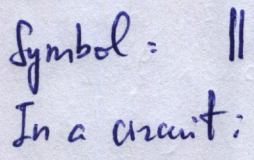 Symbol: ||
In a circuit: